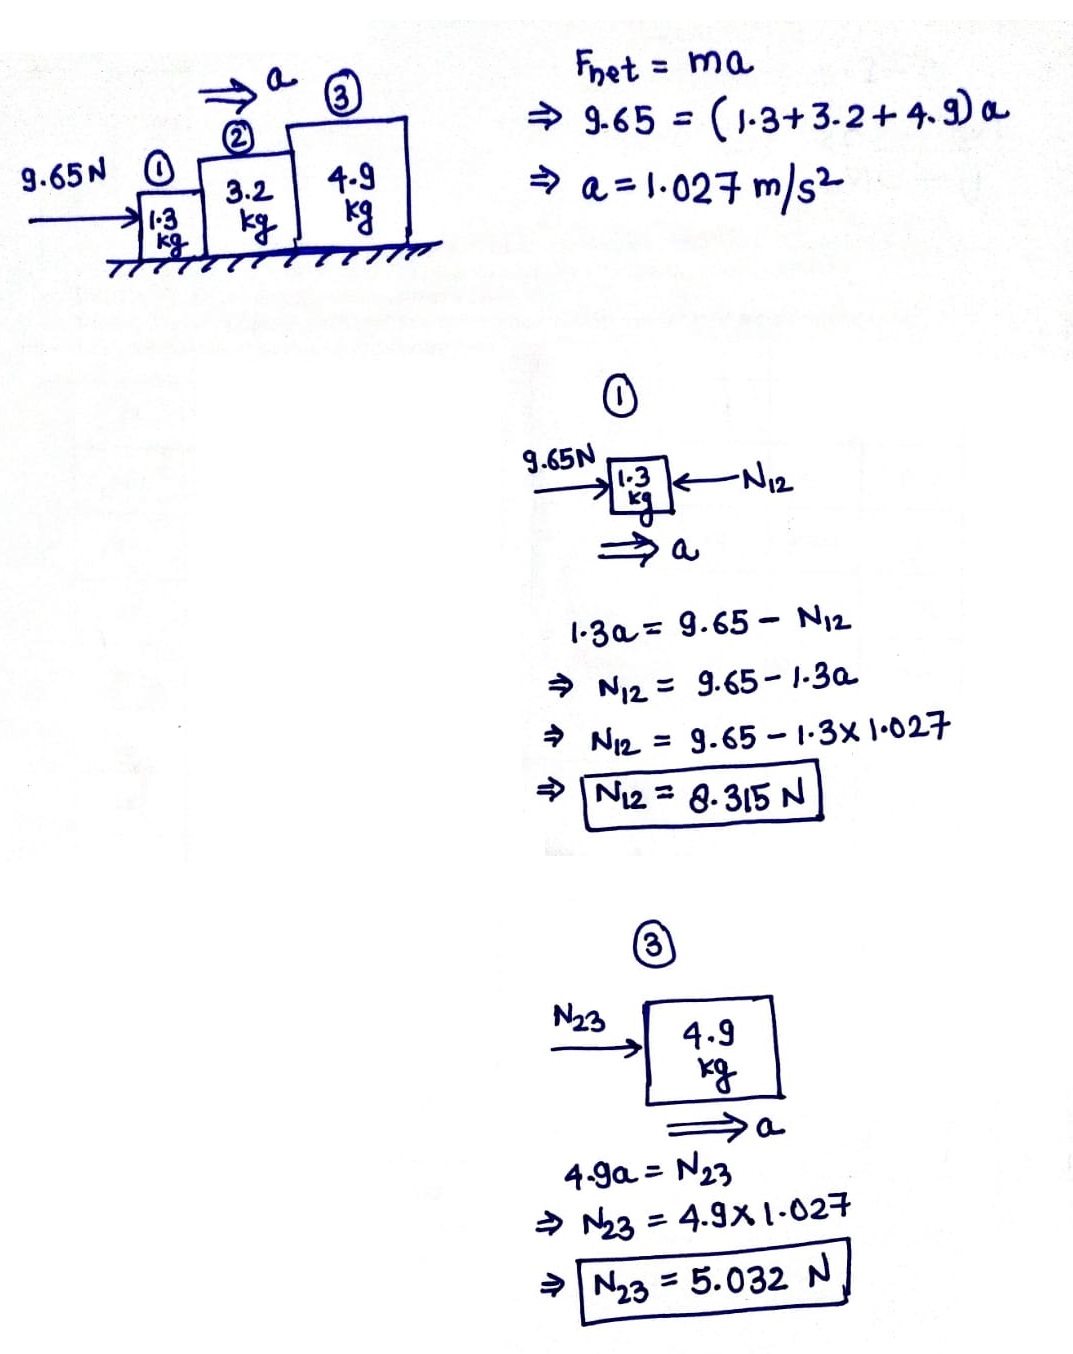 a
③
②
①
9.65N
1.3
kg
3.2
kg
4.9
kg
Fnet = ma
⇒ 9.65 = (1.3+3.2+4.9)a
⇒ a = 1.027 m/s²
①
9.65N
1.3
kg
N₁₂
a
1.3a = 9.65 - N₁₂
⇒ N₁₂ = 9.65 - 1.3a
⇒ N₁₂ = 9.65 - 1.3 × 1.027
⇒ N₁₂ = 8.315 N
③
N₂₃
4.9
kg
a
4.9a = N₂₃
⇒ N₂₃ = 4.9 × 1.027
⇒ N₂₃ = 5.032 N